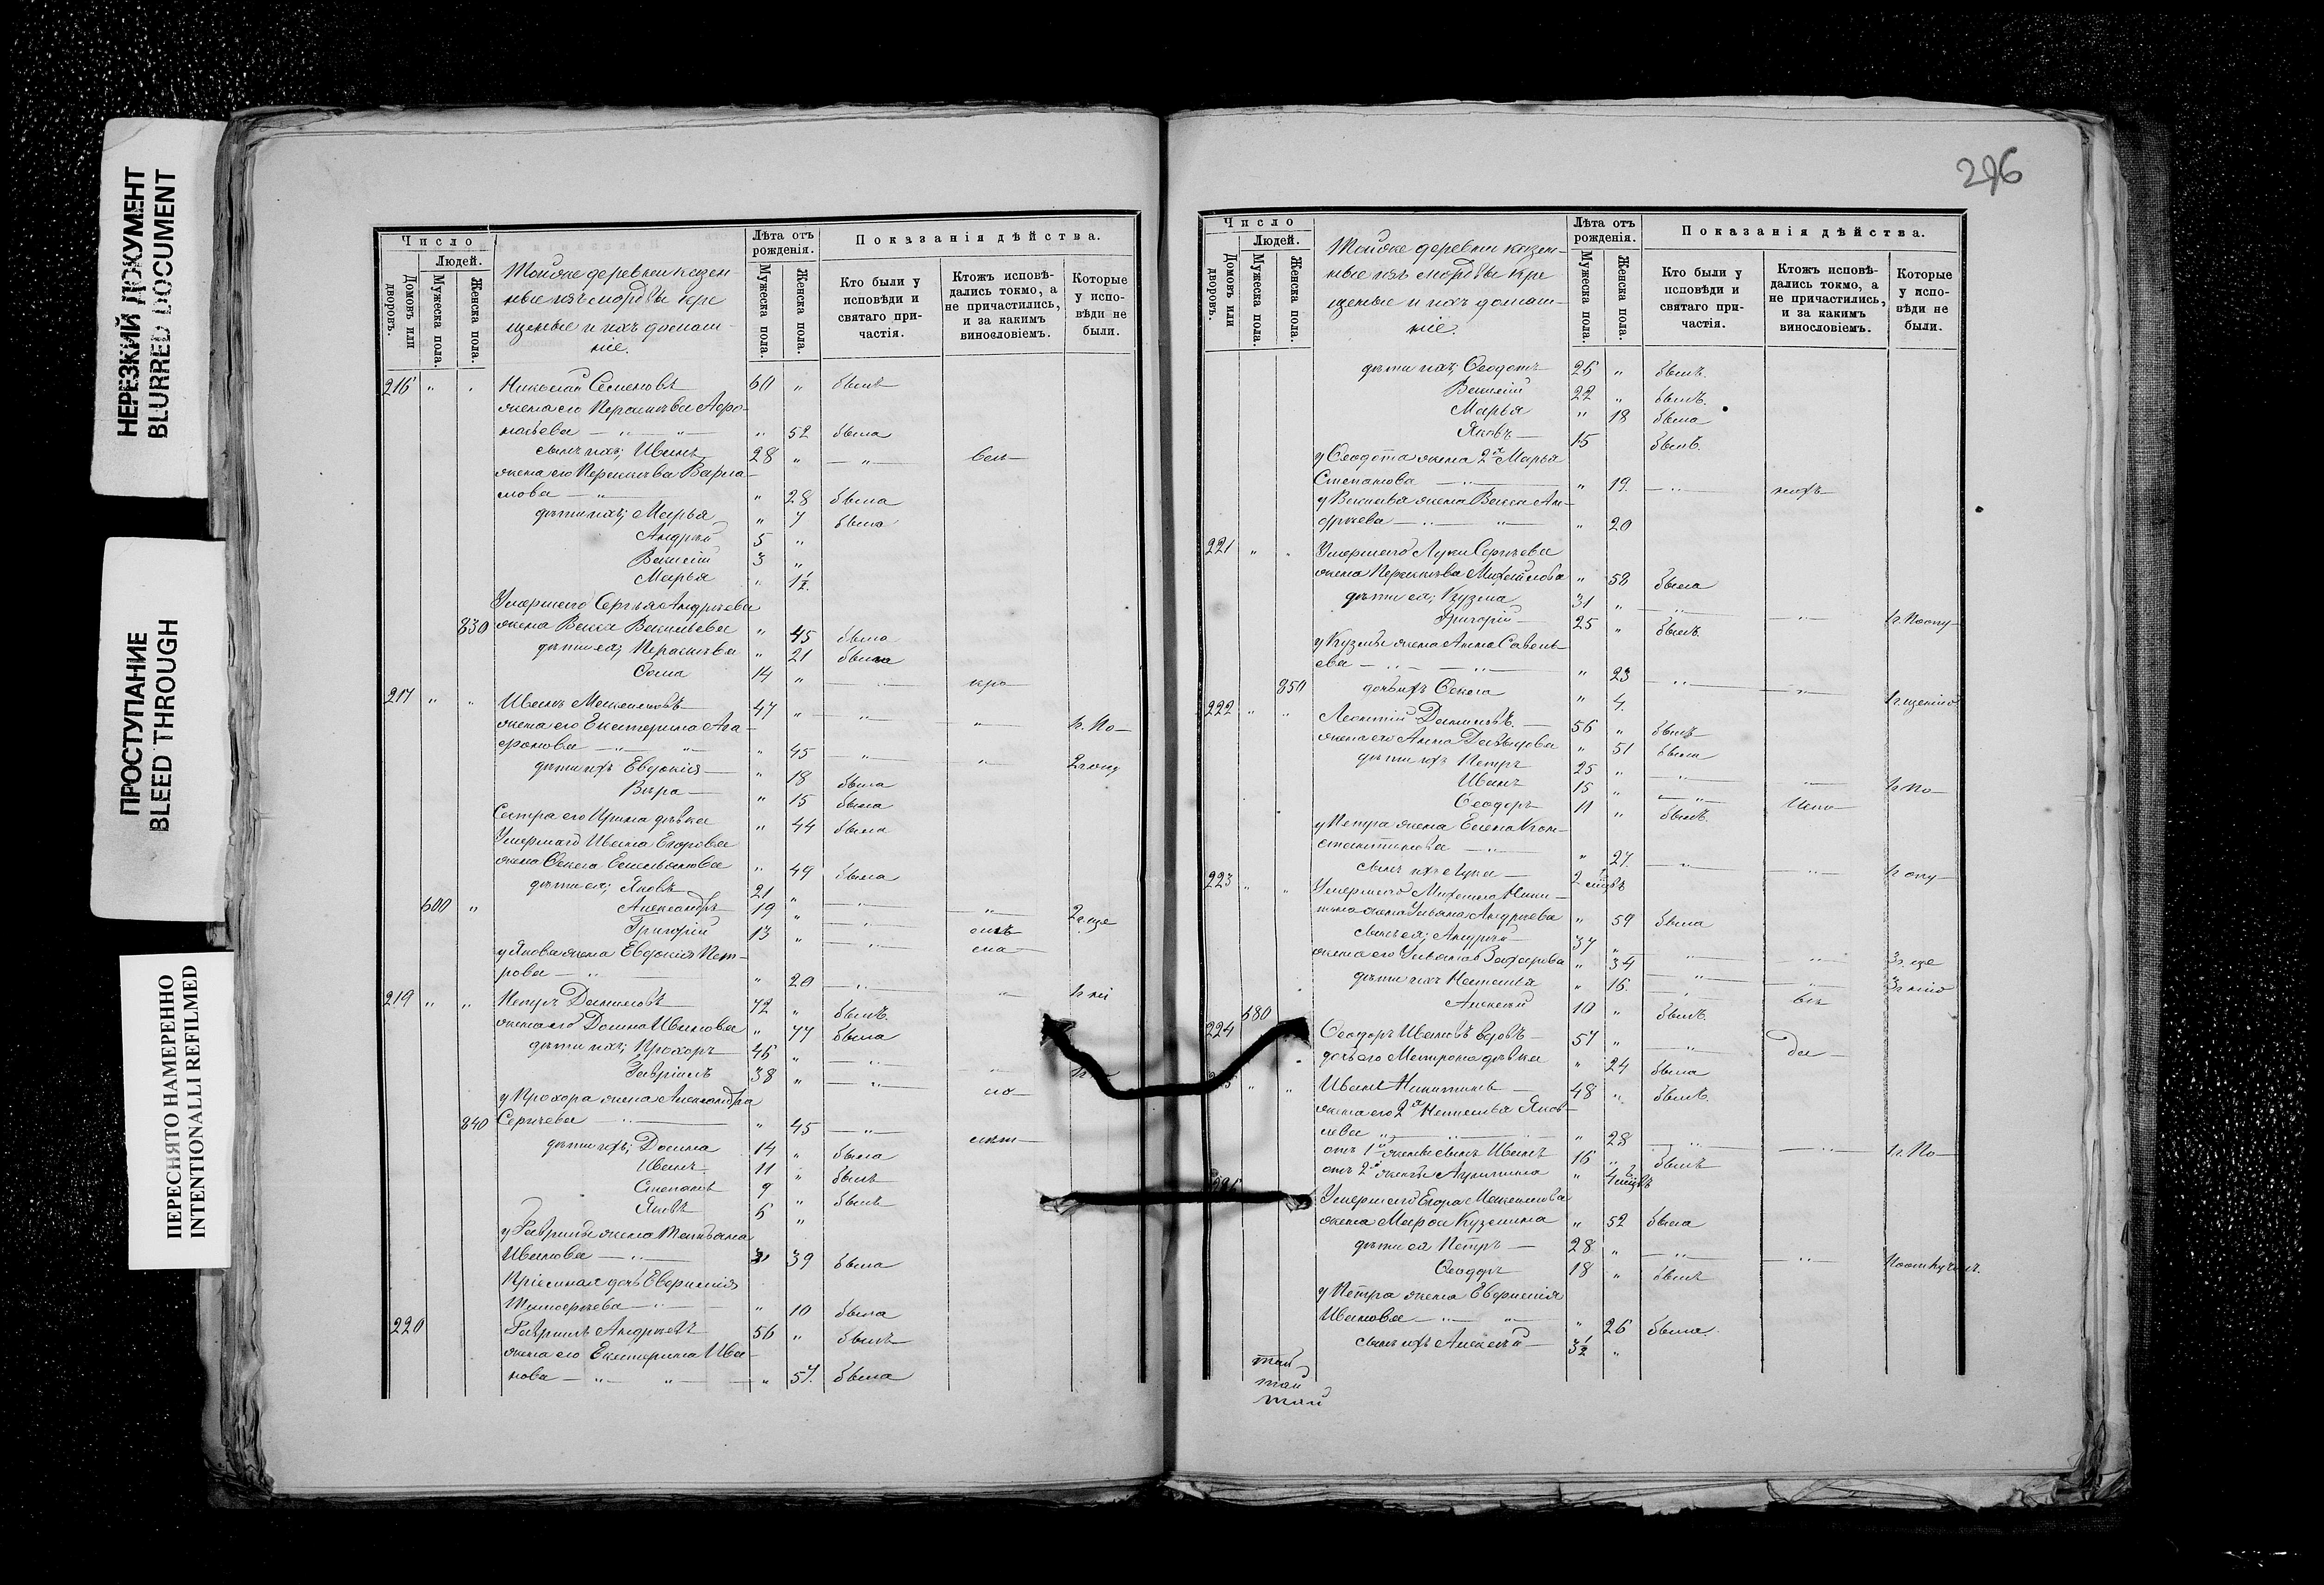 НЕРЕЗКИЙ ДОКУМЕНТ
BLURRED DOCUMENT
ПРОСТУПАНИЕ
BLEED THROUGH
ПЕРЕСНЯТО НАМЕРЕННО
INTENTIONALLI REFILMED
Число
Людей.
Домовъ или дворовъ.
Мужеска пола.
Женска пола.
Тойже деревни казен
ные изъ мордвы кре
щеные и ихъ домаш-
ніе.
Лѣта отъ рожденія.
Мужеска пола.
Женска пола.
Показанія дѣйства.
Кто были у исповѣди и святаго при-частія.
Ктожъ исповѣ-дались токмо, а не причастились, и за какимъ винословіемъ.
Которые у испо-вѣди не были.
216 " " Николай Семеновъ 60 " былъ
жена его Параскева
" 52 была
сынъ ихъ; Иванъ 28 " "
жена его Параскева Варла-
мова " 28 была
дѣти ихъ; Марья " 7 была
Андрей 5 "
Василій 3 "
Марья " 1½
Умершаго Сергѣя Андрѣева
830 жена Васса Васильева " 45 была
дѣти ея; Параскева " 21 была
Ѳома 14 "
217 " " Иванъ 47 " " " 1г. По-
жена его Екатерина Ага-
фонова " 45 " "
дѣти ихъ Евдокія " 18 была
Вѣра " 15 была
Сестра его Ирина дѣвка " 44 была
Умершаго Ивана Егорова
жена Ѳекла Емельянова " 49 была
дѣти ея; Яковъ 21 "
600 " Александръ 19 " 2г. ще
Григорій 13 "
у Якова жена Евдокія Пет-
рова " 20 "
219 " " Петръ Даниловъ 72 " былъ
жена его Домна Иванова " 77 была
дѣти ихъ; Прохоръ 46 " "
Гавріилъ 38 " "
у Прохора жена Александра
840 Сергѣева " 45 "
дѣти ихъ; Домна 14 " была
Иванъ 11 " былъ
Степанъ 9 " былъ
Яковъ 6 "
у Гавріила жена Татьяна
Иванова " 39 была
Пріемная дочь Евфимія
Тимоѳеева " 10 была
220 Гавріилъ Андреевъ 56 " былъ
жена его Екатерина Ива-
нова " 57 была
296
Число
Людей.
Домовъ или дворовъ.
Мужеска пола.
Женска пола.
Тойже деревни казен-
ные изъ мордвы кре
щеные и ихъ домаш-
ніе.
Лѣта отъ рожденія.
Мужеска пола.
Женска пола.
Показанія дѣйства.
Кто были у исповѣди и святаго при-частія.
Ктожъ исповѣ-дались токмо, а не причастились, и за какимъ винословіемъ.
Которые у испо-вѣди не были.
дѣти ихъ; Ѳеодотъ 26 " былъ.
Василій 22 " былъ.
Марья " 18 была
Яковъ 15 былъ.
у Ѳеодота жена 2я Марья
Степанова " 19. "
у Василья жена Васса Ан-
дреева " 20
221 " " Умершаго Луки Сергѣева
жена Параскева Михайлова " 58 была
дѣти ея; Кузма 31 " "
Григорій 25 " былъ.
у Кузмы жена Анна Савель-
ева " 23 "
850 дочь ихъ Ѳекла " 4.
222 " " Леонтій Даниловъ 56 " былъ
жена его Анна Давыдова " 51 была
дѣти ихъ Петръ 25 " " " 1г. По-
Иванъ 15 " "
Ѳеодоръ 11 " былъ.
у Петра жена Елена Кон-
стантинова " 27. "
сынъ ихъ Лука 2 мцъ
223 " " Умершаго Михаила Ники-
тина жена Ульяна Андреева " 59 была
сынъ ея; Андрей 37 " " " 3г. ще
жена его Ульяна Захарова " 34 " "
дѣти ихъ Наталья " 16. "
680 Алексѣй 10 " былъ.
224 Ѳеодоръ Ивановъ вдовъ 57 " "
дочь его Матрона дѣвка " 24 была
" " Иванъ Никитинъ 48 " былъ.
жена его 2я Наталья Яков-
лева " 28 " " 1г. По-
отъ 1й жены сынъ Иванъ 16 " былъ
отъ 2й жены Акулина " 4 мцъ
Умершаго Егора Максимова
жена Марѳа Кузмина " 52 была
дѣти ея Петръ 28 " "
Ѳеодоръ 18 " былъ
у Петра жена Евфимія
Иванова " 26 была.
сынъ ихъ Алексѣй 3½ "